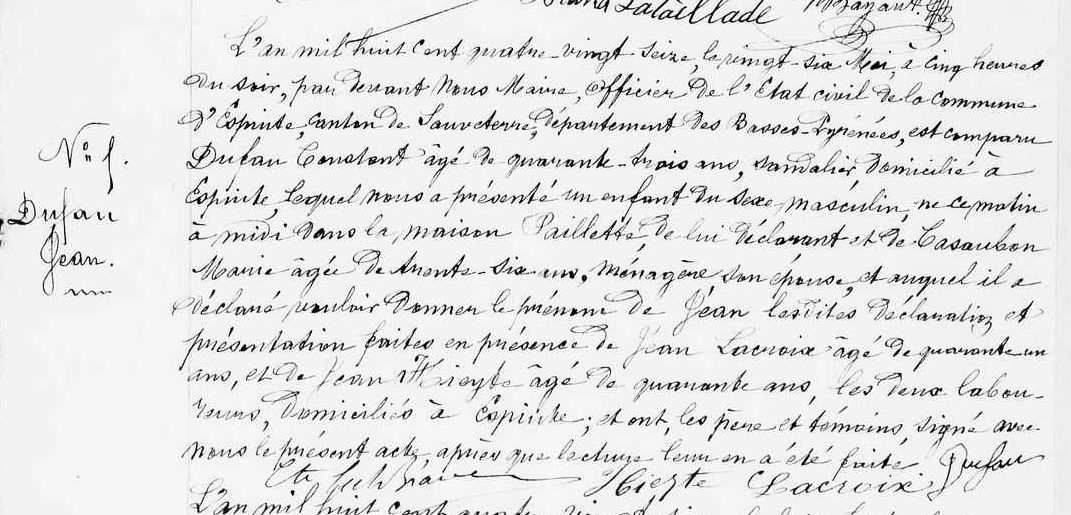 Lataillade
L'an mil huit cent quatre-vingt-seize, le vingt-six Mai, à cinq heures
du soir, par devant Nous Maire, officier de l'Etat civil de la commune
d'Espiute, canton de Sauveterre, département des Basses-Pyrénées, est comparu
Dufau Constant âgé de quarante-trois ans, sandalier, domicilié à
Espiute, lequel nous a présenté un enfant du sexe masculin, né ce matin
à midi dans la maison Paillette, de lui déclarant et de Casaubon
Marie âgée de trente-six ans, ménagère son épouse, et auquel il a
déclaré vouloir donner le prénom de Jean lesdites déclaration et
présentation faites en présence de Jean Lacroix âgé de quarante-un
ans, et de Jean Hieyte âgé de quarante ans, les deux labou-
reurs, domiciliés à Espiute; et ont, les père et témoins, signé avec
nous le présent acte, après que lecture leur en a été faite. Dufau
Hieyte Lacroix
L'an mil huit cent quatre-vin
Nº 5.
Dufau
Jean.